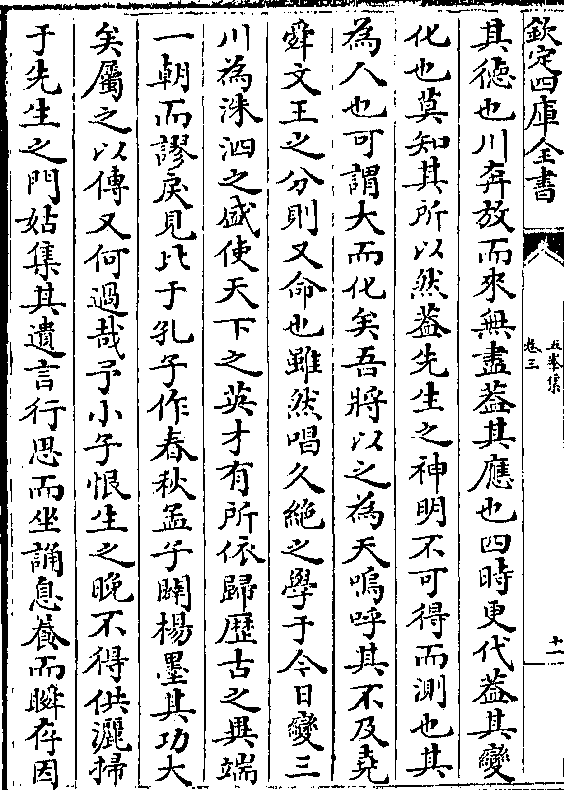 欽定四庫全書
五峯集
卷三
十一
其德也川奔放而來無盡葢其應也四時更代葢其變
化也莫知其所以然葢先生之神明不可得而測也其
為人也可謂大而化矣吾將以之為天嗚呼其不及堯
舜文王之分則又命也雖然唱久絶之學于今日變三
川為洙泗之盛使天下之英才有所依歸歴古之異端
一朝而謬戾見比于孔子作春秋孟子闢楊墨其功大
矣屬之以傳又何過哉予小子恨生之晚不得供灑掃
于先生之門姑集其遺言行思而坐誦息養而瞬存因